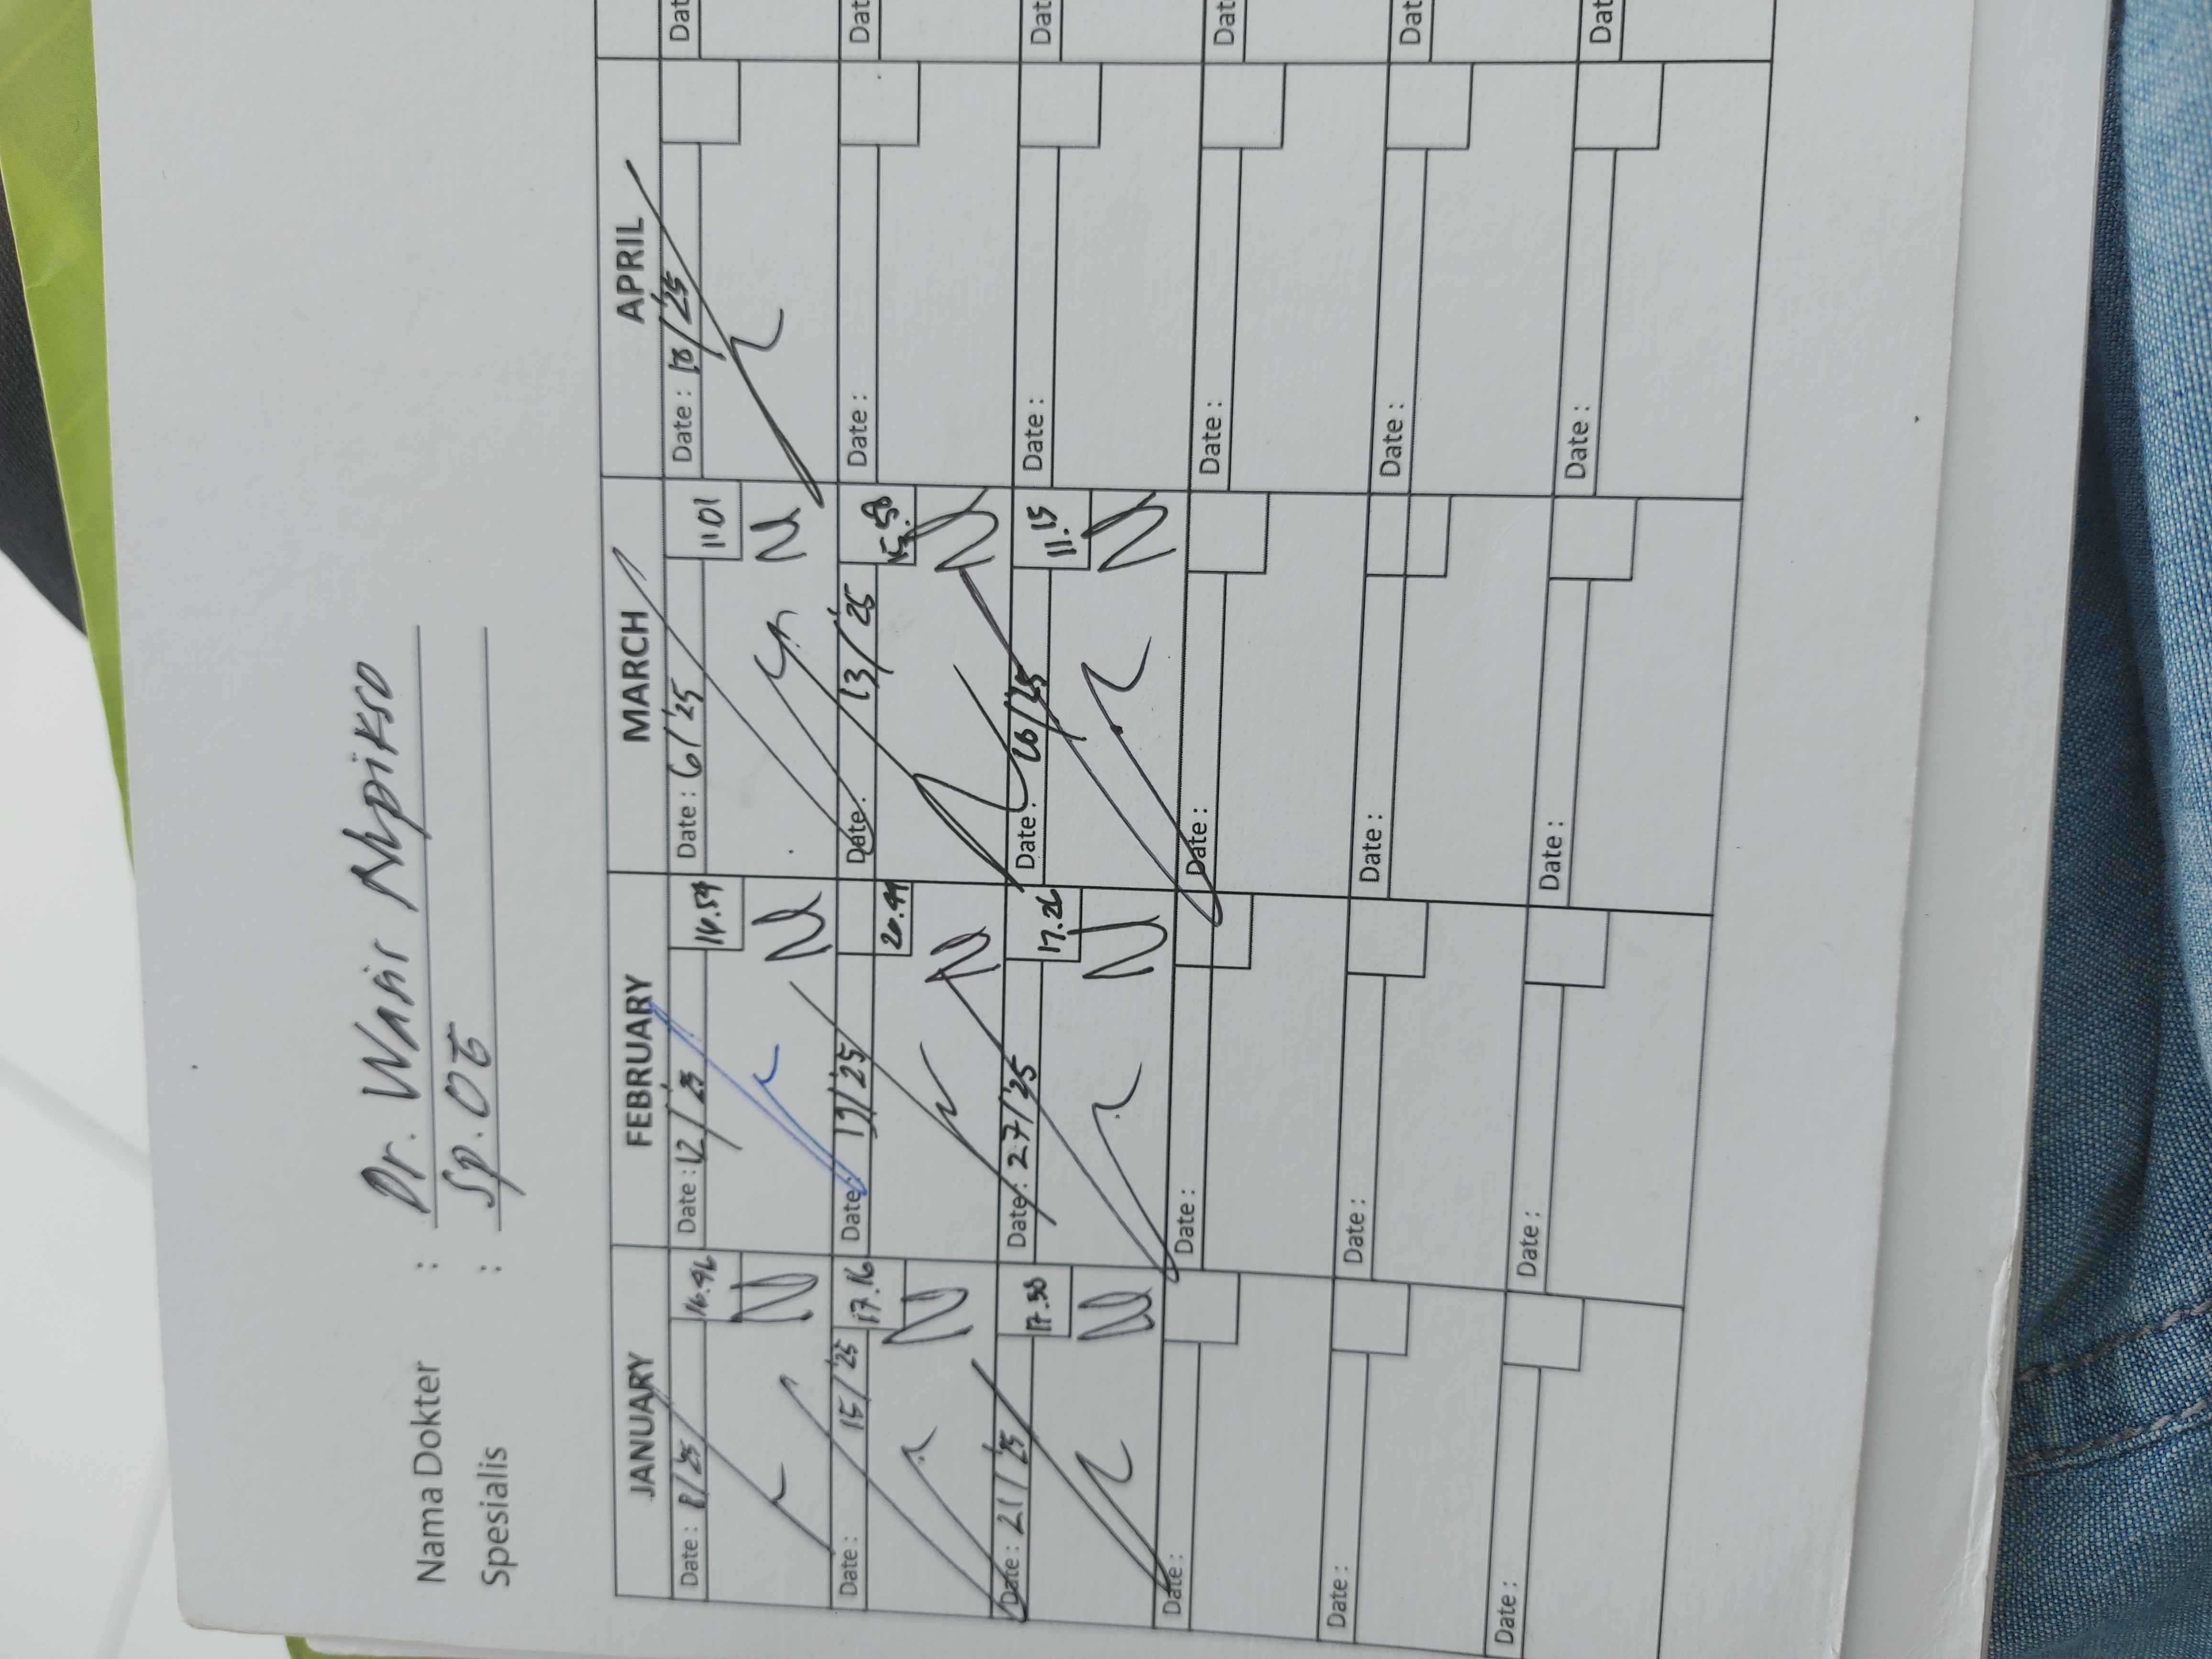 Nama Dokter : Dr. Wanir
Spesialis : Sp. OT
JANUARY FEBRUARY MARCH APRIL
Date : 8/'25 16.46 Date : 12/'25 14.54 Date : 6/'25 11.01 Date : 18/'25 Dat
Date : 15/'25 17.16 Date : 19/'25 20.49 Date : 13/'25 Date : Dat
Date : 21/'25 17.30 Date : 27/'25 17.26 Date : 26/'25 11.15 Date : Dat
Date : Date : Date : Date : Dat
Date : Date : Date : Date : Dat
Date : Date : Date : Date : Dat